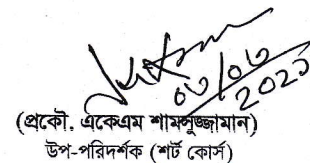 ০৬/০৬
2021
(প্রকৌ. একেএম শামসুজ্জামান)
উপ-পরিদর্শক (শর্ট কোর্স)